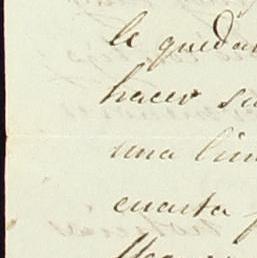 le queda
hacer su
una lim
cuarta